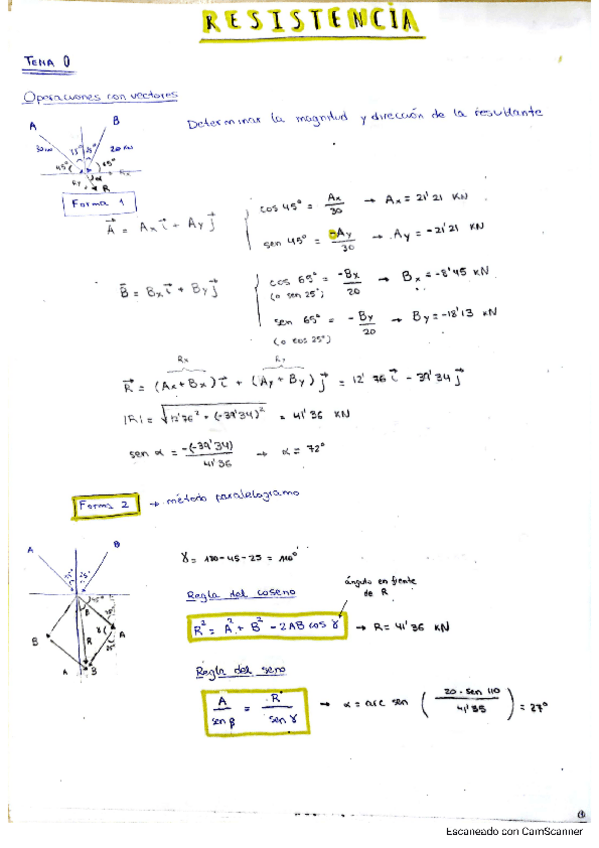 RESISTENCIA
TEMA 0
Operaciones con vectores
Determinar la magnitud y dirección de la resultante
A B
30 KN 20 KN
45° 65°
α
R
Forma 1
A⃗ = Ax i⃗ + Ay j⃗
cos 45° = Ax/30 → Ax = 21'21 KN
sen 45° = -Ay/30 → Ay = -21'21 KN
B⃗ = Bx i⃗ + By j⃗
cos 65° = -Bx/20 → Bx = -8'45 KN
(o sen 25°)
sen 65° = -By/20 → By = -18'13 KN
(o cos 25°)
Rx Ry
R⃗ = (Ax+Bx) i⃗ + (Ay+By) j⃗ = 12'76 i⃗ - 39'34 j⃗
|R| = √12'76² + (-39'34)² = 41'36 KN
sen α = -(-39'34)/41'36 → α = 72°
Forma 2 → método paralelogramo
A B
B R A
A B
γ = 180-45-25 = 110°
Regla del coseno
ángulo en frente
de R
R² = A² + B² - 2AB cos γ → R = 41'36 KN
Regla del seno
A/sen β = R/sen γ → α = arc sen (20 · sen 110/41'35) = 27°
Escaneado con CamScanner